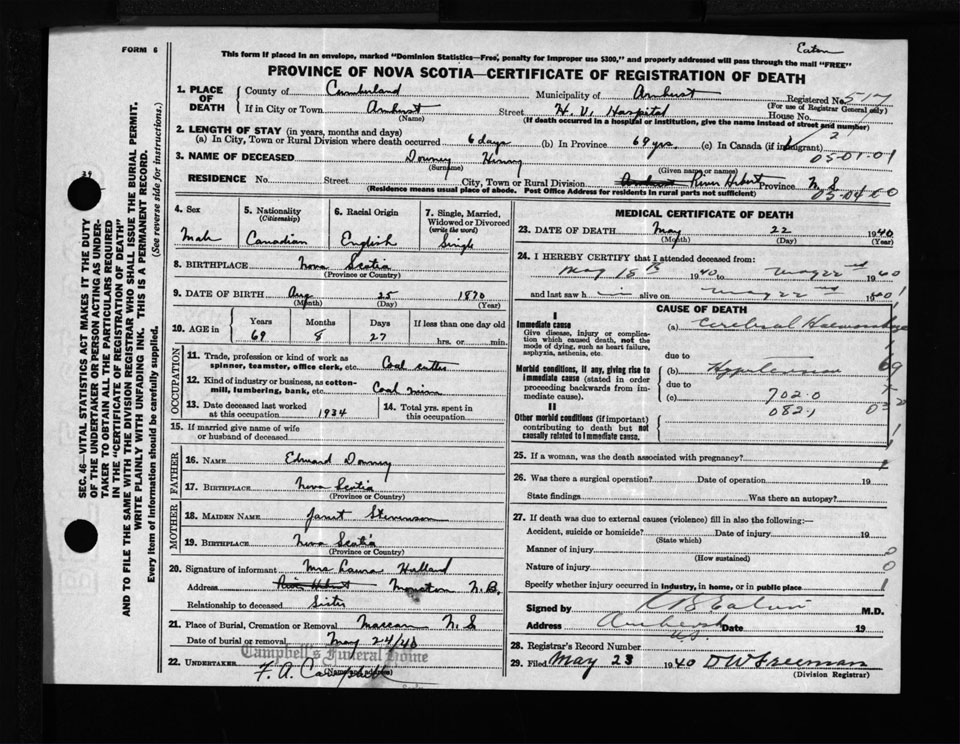 Eaton
FORM 6
This form if placed in an envelope, marked "Dominion Statistics—Free, penalty for improper use $300," and properly addressed will pass through the mail "FREE"
PROVINCE OF NOVA SCOTIA—CERTIFICATE OF REGISTRATION OF DEATH
1. PLACE OF DEATH
County of Cumberland Municipality of Amherst Registered No. 517
(For use of Registrar General only)
If in City or Town Amherst Street H. V. Hospital House No.
(Name) (If death occurred in a hospital or institution, give the name instead of street and number)
2. LENGTH OF STAY (in years, months and days)
(a) In City, Town or Rural Division where death occurred 6 days (b) In Province 69 yrs. (c) In Canada (if immigrant)
2
05-01-01
3. NAME OF DECEASED Downey Henry
(Surname) (Given name or names)
RESIDENCE No. Street City, Town or Rural Division River Hebert Province N.S.
(Residence means usual place of abode. Post Office Address for residents in rural parts not sufficient)
4. Sex Male
5. Nationality (Citizenship) Canadian
6. Racial Origin English
7. Single, Married, Widowed or Divorced (write the word) Single
8. BIRTHPLACE Nova Scotia
(Province or Country)
9. DATE OF BIRTH Aug 25 1870
(Month) (Day) (Year)
10. AGE in Years Months Days If less than one day old
69 8 27 hrs. or min.
OCCUPATION
11. Trade, profession or kind of work as spinner, teamster, office clerk, etc. Coal cutter
12. Kind of industry or business, as cotton-mill, lumbering, bank, etc. Coal mine
13. Date deceased last worked at this occupation 1934
14. Total yrs. spent in this occupation
15. If married give name of wife or husband of deceased
FATHER
16. NAME Edward Downey
17. BIRTHPLACE Nova Scotia
(Province or Country)
MOTHER
18. MAIDEN NAME Janet Stevenson
19. BIRTHPLACE Nova Scotia
(Province or Country)
20. Signature of informant Mrs Laura Holland
Address River Hebert Moncton N.B.
Relationship to deceased Sister
21. Place of Burial, Cremation or Removal Maccan N.S
Date of burial or removal May 24/40
Campbell's Funeral Home
22. UNDERTAKER F. A. Campbell
MEDICAL CERTIFICATE OF DEATH
23. DATE OF DEATH May 22 1940
(Month) (Day) (Year)
24. I HEREBY CERTIFY that I attended deceased from:
May 18th 1940 to May 22nd 1940
and last saw him alive on May 22nd 1940
CAUSE OF DEATH
I
Immediate cause
Give disease, injury or complication which caused death, not the mode of dying, such as heart failure, asphyxia, asthenia, etc.
(a) Cerebral Haemorrhage
due to
Morbid conditions, if any, giving rise to immediate cause (stated in order proceeding backwards from immediate cause).
(b) Hypertension
due to
(c) 702.0
082.1
II
Other morbid conditions (if important) contributing to death but not causally related to immediate cause.
25. If a woman, was the death associated with pregnancy?
26. Was there a surgical operation? Date of operation 19
State findings Was there an autopsy?
27. If death was due to external causes (violence) fill in also the following:—
Accident, suicide or homicide? Date of injury 19
(State which)
Manner of injury
(How sustained)
Nature of injury
Specify whether injury occurred in industry, in home, or in public place
Signed by Eaton M.D.
Address Amherst N.S. Date 19
28. Registrar's Record Number
29. Filed May 23 1940 D W Freeman
(Division Registrar)
39
SEC. 46—VITAL STATISTICS ACT MAKES IT THE DUTY
OF THE UNDERTAKER OR PERSON ACTING AS UNDER-
TAKER TO OBTAIN ALL THE PARTICULARS REQUIRED
IN THE "CERTIFICATE OF REGISTRATION OF DEATH"
AND TO FILE THE SAME WITH THE DIVISION REGISTRAR WHO SHALL ISSUE THE BURIAL PERMIT.
WRITE PLAINLY WITH UNFADING INK. THIS IS A PERMANENT RECORD.
Every item of information should be carefully supplied. (See reverse side for instructions.)